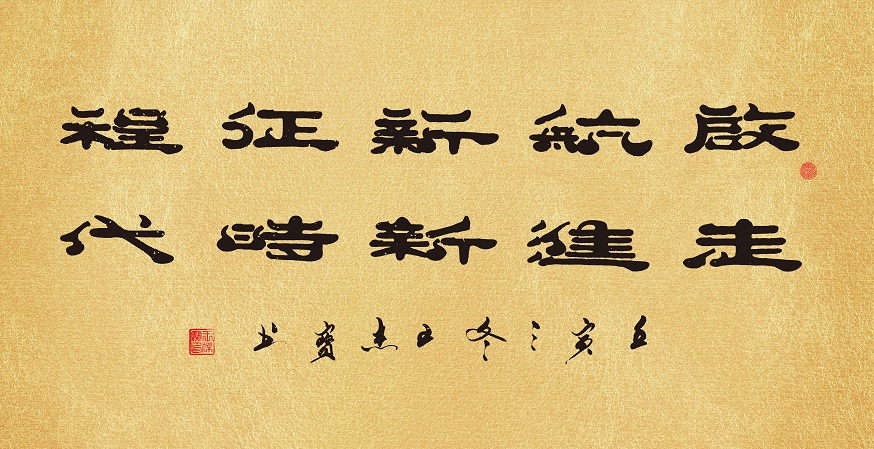 啟航新征程
走進新時代
壬寅之冬王杰寶书